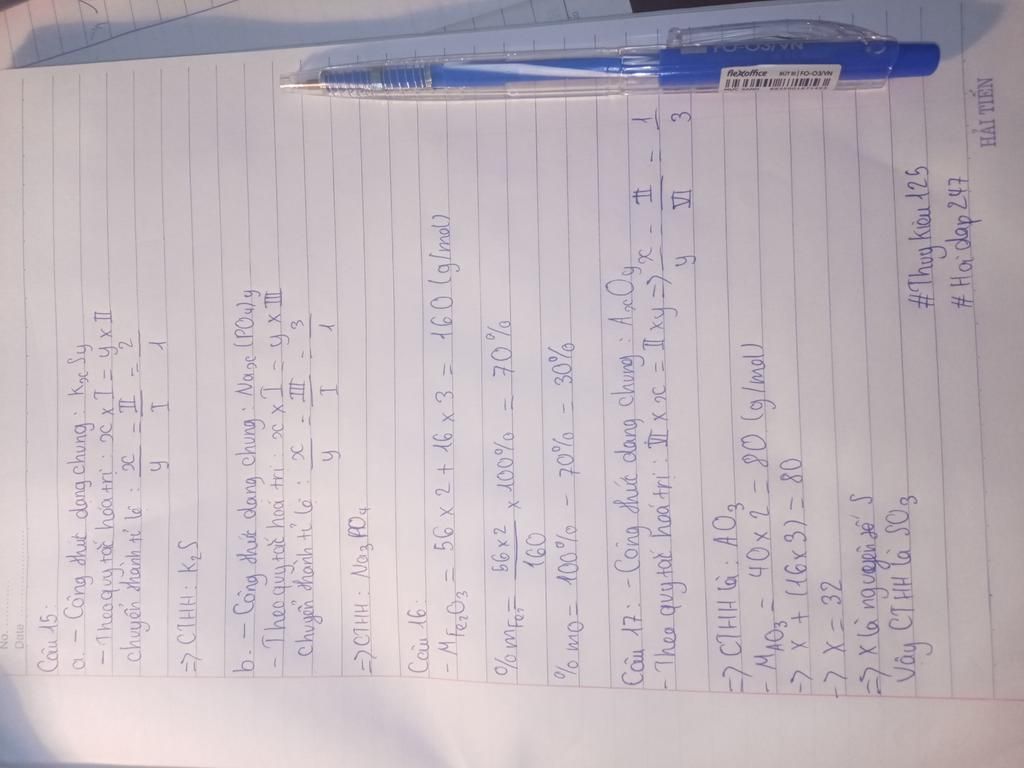 No.
Date
Câu 15:
a. - Công thức dạng chung: KxSy
- Theo quy tắc hoá trị: x x I = y x II
chuyển thành tỉ lệ: x/y = II/I = 2/1
=> CTHH: K2S
b. - Công thức dạng chung: Nax(PO4)y
- Theo quy tắc hoá trị: x x I = y x III
chuyển thành tỉ lệ: x/y = III/I = 3/1
=> CTHH: Na3PO4
Câu 16:
- MFe2O3 = 56 x 2 + 16 x 3 = 160 (g/mol)
%mFe = 56 x 2/160 x 100% = 70%
%mO = 100% - 70% = 30%
Câu 17: - Công thức dạng chung: AxOy
- Theo quy tắc hoá trị: VI x x = II x y => x/y = II/VI = 1/3
=> CTHH là: AO3
- MAO3 = 40 x 2 = 80 (g/mol)
-> X + (16 x 3) = 80
-> X = 32
=> X là nguyên tố S
Vậy CTHH là SO3
#Thuykieu125
#Hoidap247
HẢI TIẾN
FO-03/VN
flexoffice
BÚT BI | FO-03/VN